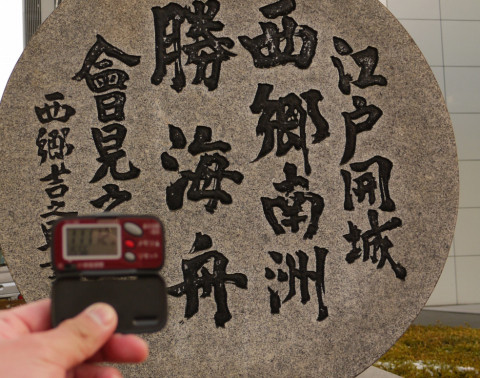 江戸開城
西郷南洲
勝海舟
會見之
西郷吉之